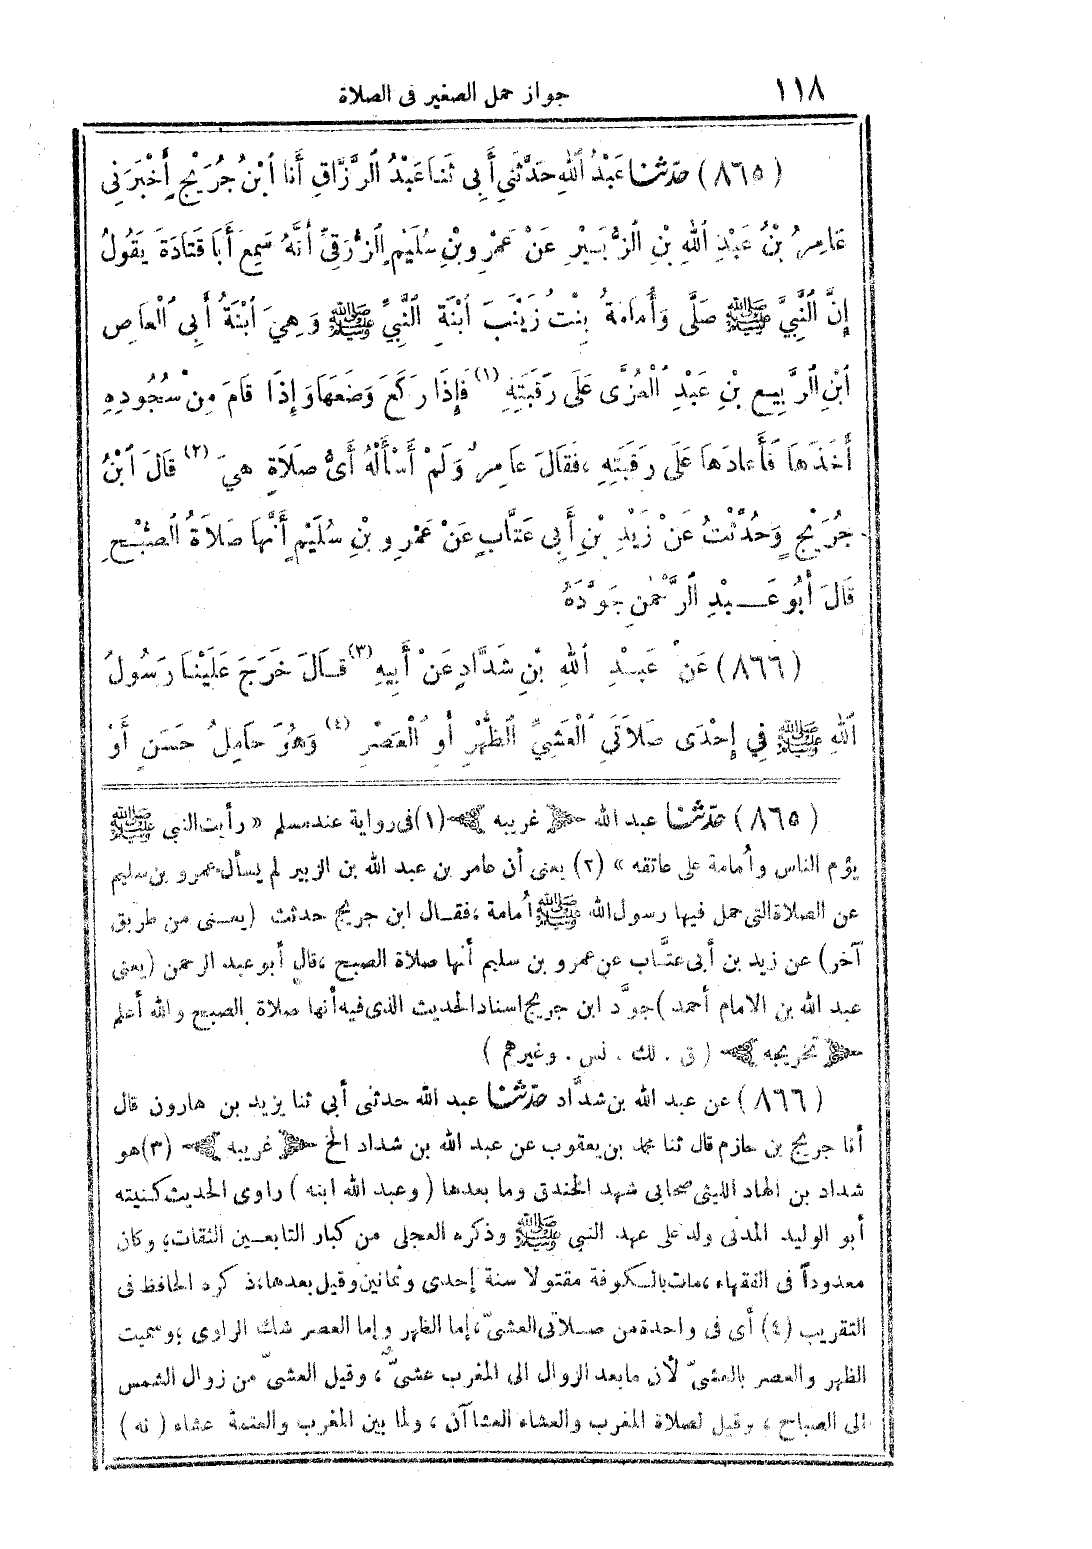 ١١٨
جواز حمل الصغير فى الصلاة
(٨٦٥) حدّثنا عَبْدُ ٱللهِ حَدَّثَنِى أَبِى ثَنَا عَبْدُ ٱلرَّزَّاقِ أَنَا ٱبْنُ جُرَيْجٍ أَخْبَرَنِى
عَامِرُ بْنُ عَبْدِ ٱللهِ بْنِ ٱلزُّبَيْرِ عَنْ عَمْرِو بْنِ سُلَيْمٍ ٱلزُّرَقِىِّ أَنَّهُ سَمِعَ أَبَا قَتَادَةَ يَقُولُ
إِنَّ ٱلنَّبِىَّ ﷺ صَلَّى وَأُمَامَةُ بِنْتُ زَيْنَبَ ٱبْنَةِ ٱلنَّبِىِّ ﷺ وَهِىَ ٱبْنَةُ أَبِى ٱلْعَاصِ
ٱبْنِ ٱلرَّبِيعِ بْنِ عَبْدِ ٱلْعُزَّى عَلَى رَقَبَتِهِ (١) فَإِذَا رَكَعَ وَضَعَهَا وَإِذَا قَامَ مِنْ سُجُودِهِ
أَخَذَهَا فَأَعَادَهَا عَلَى رَقَبَتِهِ ، فَقَالَ عَامِرٌ وَلَمْ أَسْأَلْهُ أَىُّ صَلَاةٍ هِىَ (٢) قَالَ ٱبْنُ
جُرَيْجٍ وَحُدِّثْتُ عَنْ زَيْدِ بْنِ أَبِى عَتَّابٍ عَنْ عَمْرِو بْنِ سُلَيْمٍ أَنَّهَا صَلَاةُ ٱلصُّبْحِ
قَالَ أَبُو عَبْدِ ٱلرَّحْمٰنِ جَوَّدَهُ
(٨٦٦) عَنْ عَبْدِ ٱللهِ بْنِ شَدَّادٍ عَنْ أَبِيهِ (٣) قَالَ خَرَجَ عَلَيْنَا رَسُولُ
ٱللهِ ﷺ فِى إِحْدَى صَلَاتَىِ ٱلْعَشِىِّ ٱلظُّهْرِ أَوِ ٱلْعَصْرِ (٤) وَهُوَ حَامِلُ حَسَنٍ أَوْ
(٨٦٥) حدّثنا عبد الله ﴿ غريبه ﴾ (١) فى رواية عند مسلم « رأيت النبى ﷺ
يؤم الناس وأُمامة على عاتقه » (٢) يعنى أن عامر بن عبد الله بن الزبير لم يسأل عمرو بن سليم
عن الصلاة التى حمل فيها رسول الله ﷺ أُمامة ، فقال ابن جريج حدثت (يعنى من طريق
آخر) عن زيد بن أبى عتَّاب عن عمرو بن سليم أنها صلاة الصبح ، قال أبو عبد الرحمن (يعنى
عبد الله بن الامام أحمد ) جوَّد ابن جريج اسناد الحديث الذى فيه أنها صلاة الصبح والله أعلم
﴿ تخريجه ﴾ ( ق . لك . نس . وغيرهم )
(٨٦٦) عن عبد الله بن شدَّاد حدّثنا عبد الله حدثنى أبى ثنا يزيد بن هارون قال
أنا جريج بن حازم قال ثنا محمد بن يعقوب عن عبد الله بن شداد الخ ﴿ غريبه ﴾ (٣) هو
شداد بن الهاد الليثى صحابى شهد الخندق وما بعدها ( وعبد الله ابنه ) راوى الحديث كنيته
أبو الوليد المدنى ولد على عهد النبى ﷺ وذكره العجلى من كبار التابعين الثقات ، وكان
معدوداً فى الفقهاء ، مات بالكوفة مقتولا سنة إحدى وثمانين وقيل بعدها ، ذكره الحافظ فى
التقريب (٤) أى فى واحدة من صلاتى العشىّ ، إما الظهر وإما العصر شك الراوى ؛ وسميت
الظهر والعصر بالعشىّ لأن مابعد الزوال الى المغرب عشىٌّ ، وقيل العشىّ من زوال الشمس
الى الصباح ، وقيل لصلاة المغرب والعشاء العشاآن ، ولما بين المغرب والعتمة عشاء ( نه )